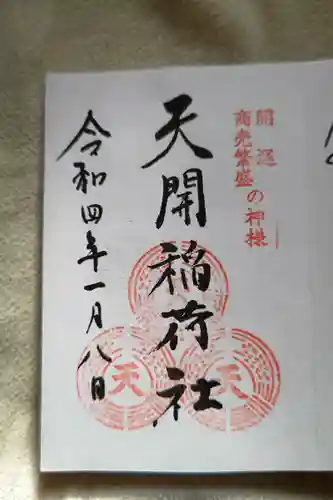 開運
商売繁盛の神様
天開稲荷社
令和四年一月八日
天
天